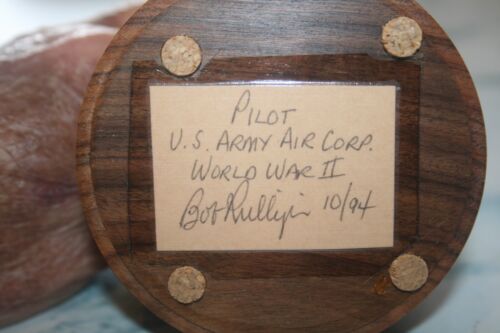 PILOT
U.S. ARMY AIR CORP.
WORLD WAR II
Bob 10/94